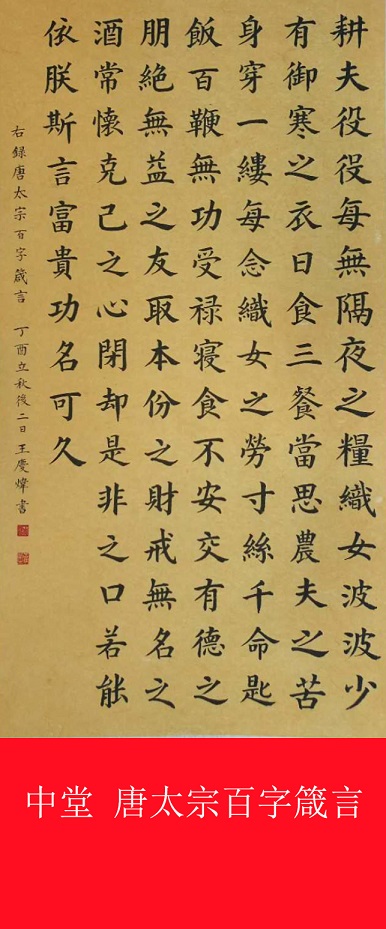 耕夫役役每無隔夜之糧織女波波少
有御寒之衣日食三餐當思農夫之苦
身穿一縷每念織女之勞寸絲千命匙
飯百鞭無功受禄寝食不安交有德之
朋絕無益之友取本份之財戒無名之
酒常懷克己之心閉却是非之口若能
依朕斯言富貴功名可久
右録唐太宗百字箴言 丁酉立秋後二日 王慶煒書
中堂 唐太宗百字箴言